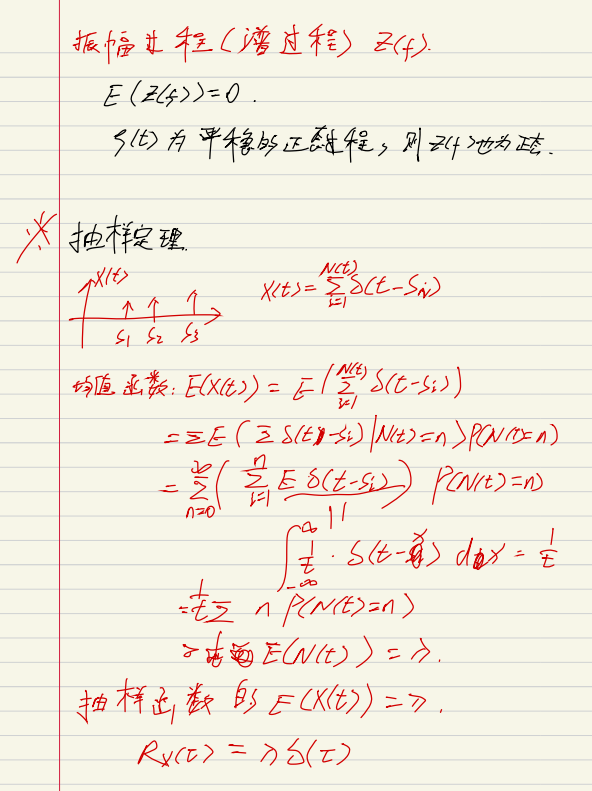 振幅过程(谱过程) Z(f).
E(Z(f))=0.
ζ(t)为平稳的正态过程,则Z(f)也为正态.
※ 抽样定理.
X(t)
S1 S2 S3
X(t)=∑_{i=1}^{N(t)} δ(t-Si)
均值函数: E(X(t)) = E(∑_{i=1}^{N(t)} δ(t-Si))
=∑E(∑δ(t-Si)|N(t)=n)P(N(t)=n)
=∑_{n=0}^{∞}(∑_{i=1}^{n} Eδ(t-Si)) P(N(t)=n)
||
∫_{-∞}^{∞} 1/t · δ(t-x) dx = 1/t
=1/t ∑ n P(N(t)=n)
= E(N(t)) = λ.
抽样函数的E(X(t))=λ.
Rx(τ) = λδ(τ)